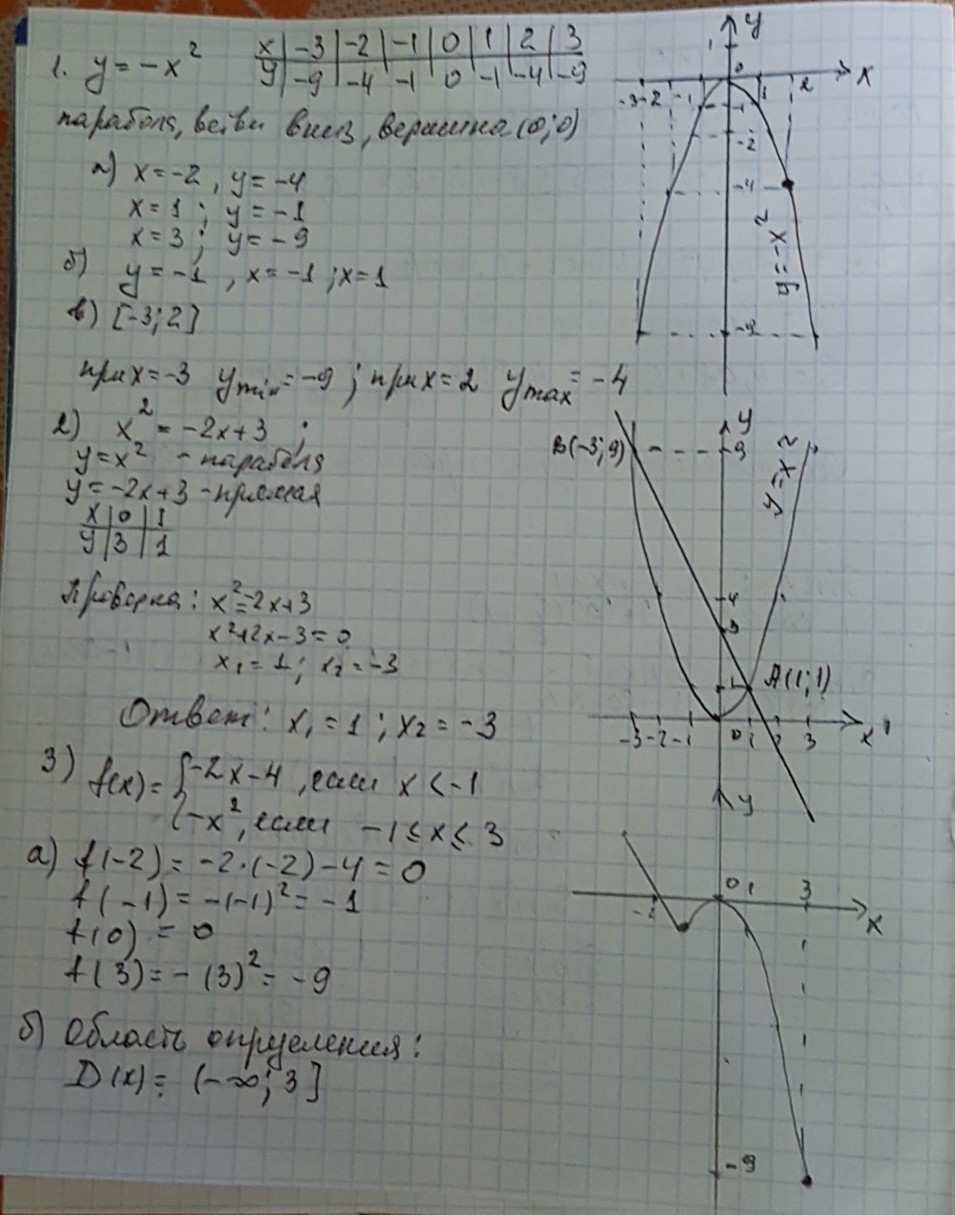 1. y = -x²
x | -3 | -2 | -1 | 0 | 1 | 2 | 3
y | -9 | -4 | -1 | 0 | -1 | -4 | -9
парабола, ветви вниз, вершина (0;0)
а) x = -2, y = -4
x = 1; y = -1
x = 3; y = -9
б) y = -1, x = -1; x = 1
в) [-3; 2]
при x = -3 y min = -9; при x = 2 y max = -4
y
1
0
x
-3 -2 -1 1 2
-1
-2
-4
-9
y = -x²
2) x² = -2x+3;
y = x² - парабола
y = -2x+3 - прямая
x | 0 | 1
y | 3 | 1
Проверка: x² = -2x+3
x²+2x-3=0
x₁ = 1; x₂ = -3
Ответ: x₁ = 1; x₂ = -3
y
B(-3; 9)
9
y = x²
4
3
1
A(1; 1)
-3 -2 -1 0 1 2 3 x
3) f(x) = { -2x-4, если x < -1
-x², если -1 ≤ x ≤ 3
а) f(-2) = -2·(-2)-4 = 0
f(-1) = -(-1)² = -1
f(0) = 0
f(3) = -(3)² = -9
б) Область определения:
D(x) = (-∞; 3]
y
-2 0 1 3
x
-9